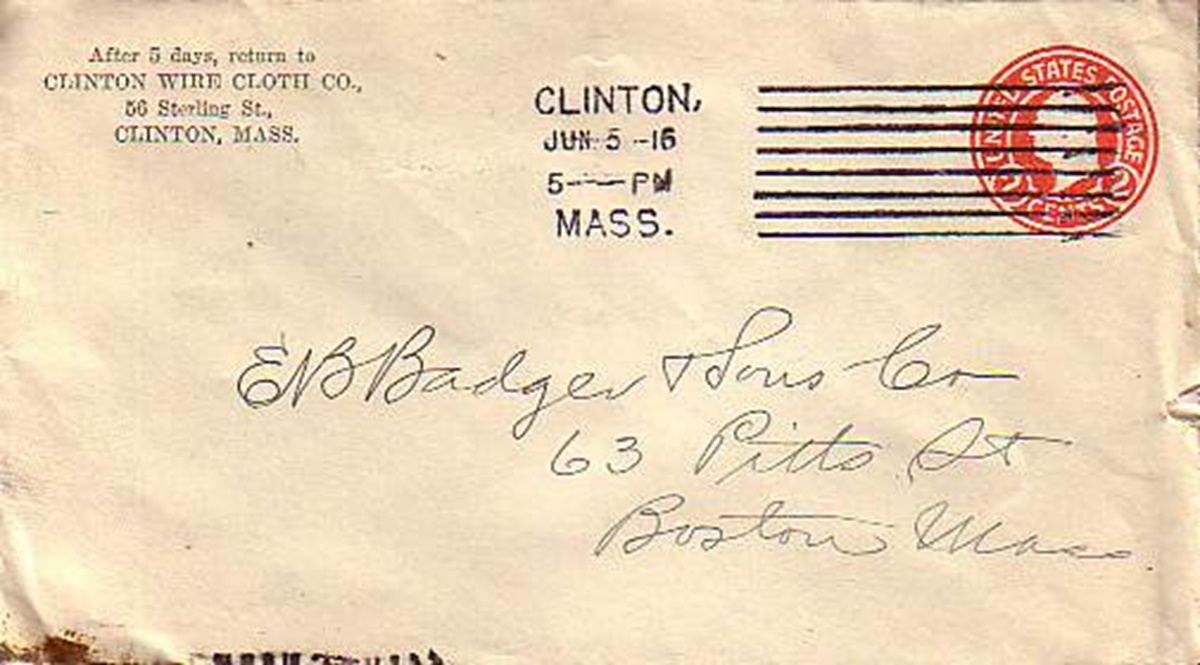 After 5 days, return to
CLINTON WIRE CLOTH CO.,
56 Sterling St.,
CLINTON, MASS.
CLINTON,
JUN 5 -16
5 — PM
MASS.
UNITED STATES POSTAGE
2 CENTS 2
E B Badger & Sons Co
63 Pitts St
Boston Mass